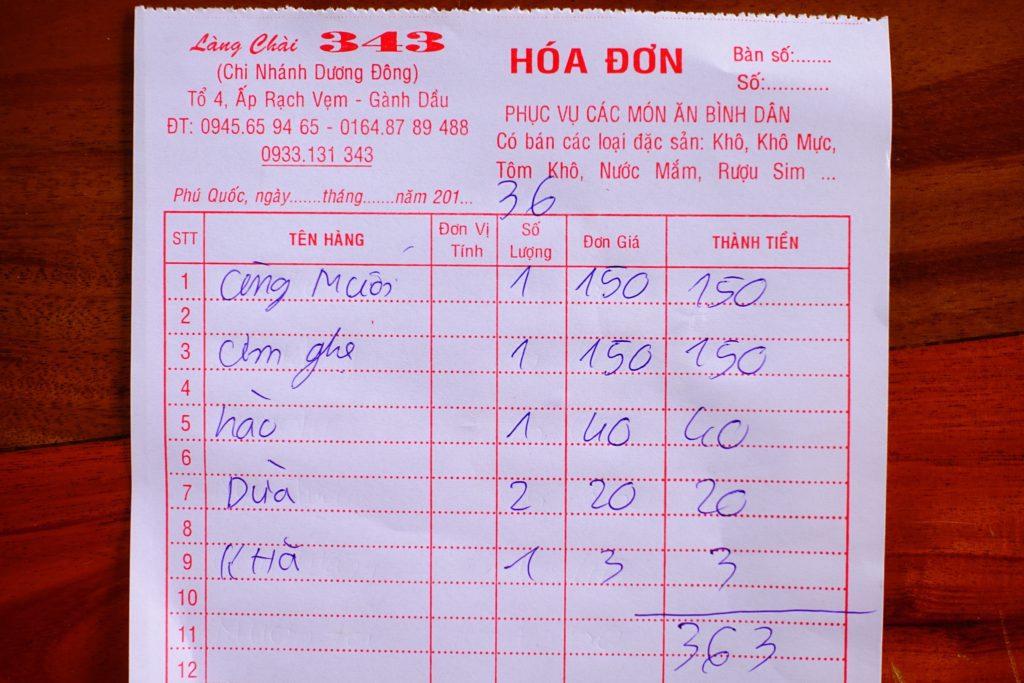 Làng Chài 343
(Chi Nhánh Dương Đông)
Tổ 4, Ấp Rạch Vẹm - Gành Dầu
ĐT: 0945.65 94 65 - 0164.87 89 488
0933.131 343
HÓA ĐƠN
Bàn số:.......
Số:............
PHỤC VỤ CÁC MÓN ĂN BÌNH DÂN
Có bán các loại đặc sản: Khô, Khô Mực,
Tôm Khô, Nước Mắm, Rượu Sim ...
Phú Quốc, ngày.......tháng.......năm 201...
36
STT TÊN HÀNG Đơn Vị Tính Số Lượng Đơn Giá THÀNH TIỀN
1 1 150 150
2
3 ghẹ 1 150 150
4
5 hào 1 40 40
6
7 Dừa 2 20 20
8
9 KHĂ 1 3 3
10
11 363
12